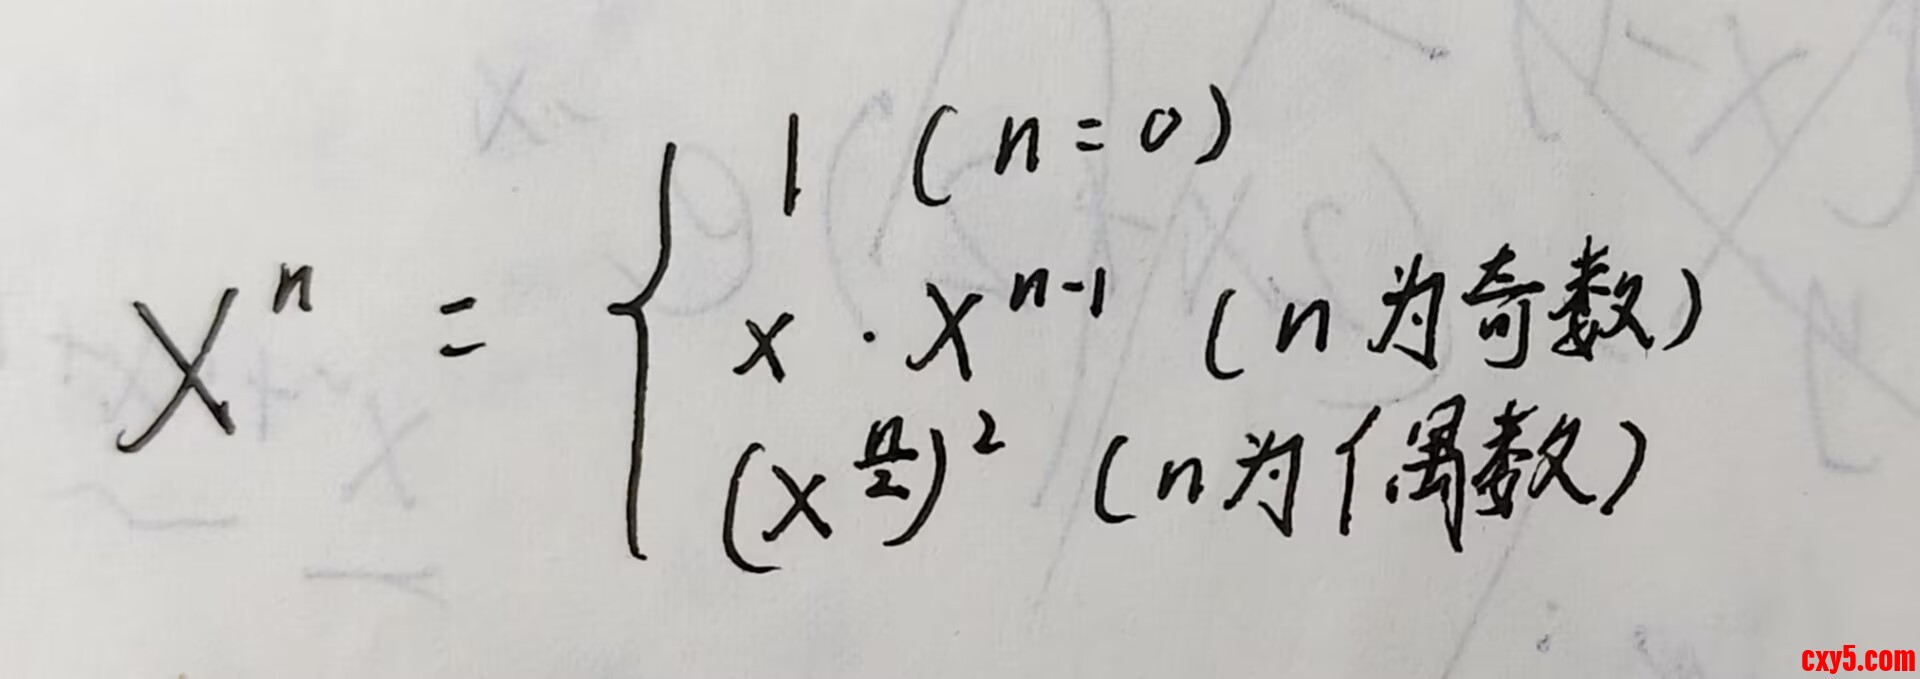 1 (n=0)
Xⁿ = { x · Xⁿ⁻¹ (n为奇数)
(x^{n/2})² (n为偶数)
cxy5.com